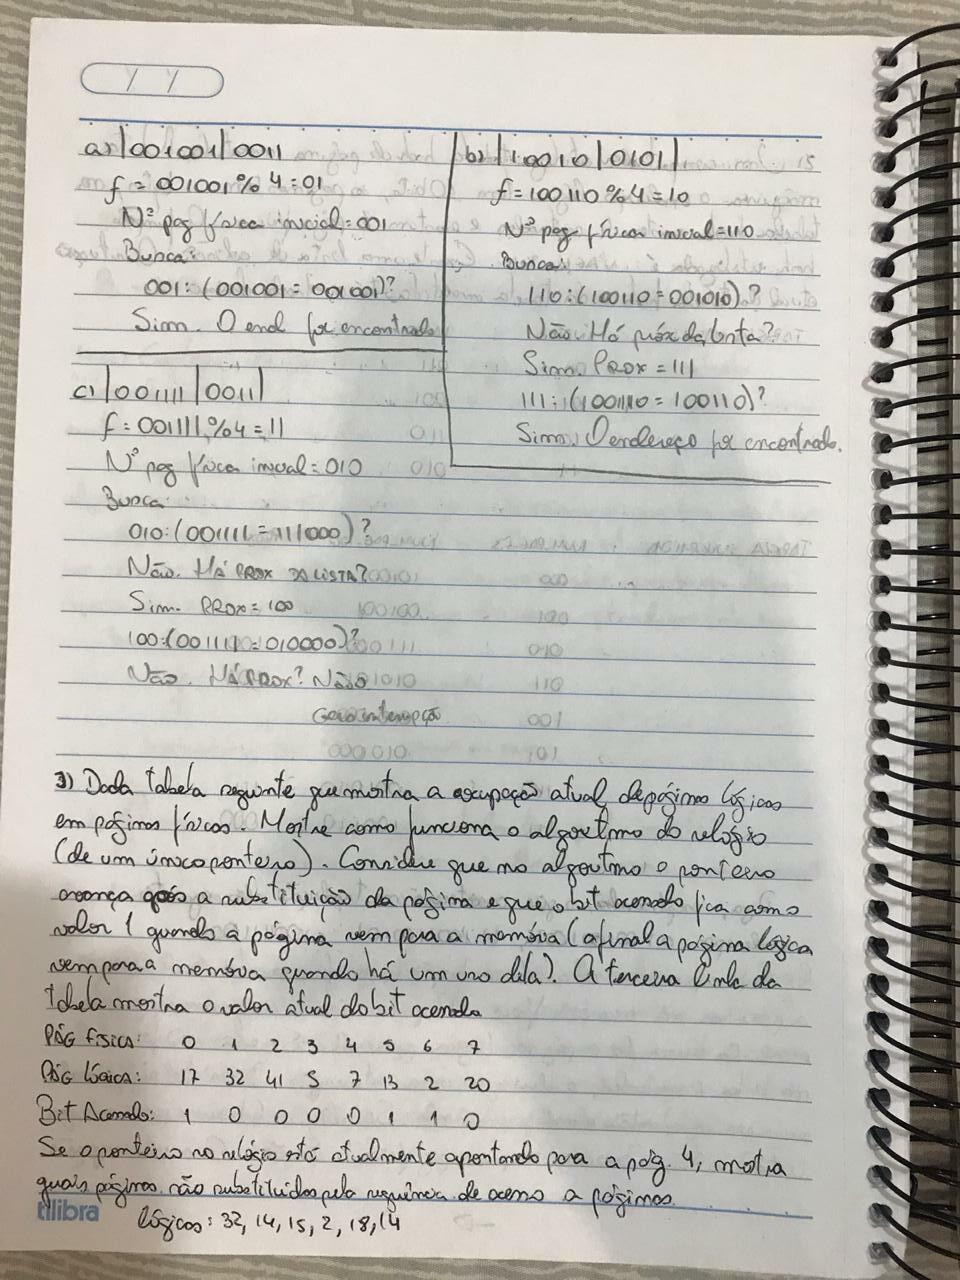 a) |001001|0011
f = 001001 % 4 = 01
Nº pag física inicial = 001
Busca:
001: (001001 = 001001)?
Sim. O end foi encontrado
b) |10010|0101|
f = 100110 % 4 = 10
Nº pag física inicial = 110
Busca:
110: (100110 = 001010)?
Não. Há próx da lista?
Sim. PROX = 111
111: (100110 = 100110)?
Sim. O endereço foi encontrado.
c) |001111|0011|
f = 001111 % 4 = 11
Nº pag física inicial = 010
Busca:
010: (001111 = 111000)?
Não. HÁ PROX DA LISTA?
Sim. PROX = 100
100: (001111 = 010000)?
Não. HÁ PROX? Não
Gera interrupção
3) Dada tabela seguinte que mostra a ocupação atual de páginas lógicas
em páginas físicas. Mostre como funciona o algoritmo do relógio
(de um único ponteiro). Considere que no algoritmo o ponteiro
avança após a substituição da página e que o bit acessado fica com o
valor 1 quando a página vem para a memória (afinal a página lógica
vem para a memória quando há um uso dela). A terceira linha da
tabela mostra o valor atual do bit acessado
PÁG FÍSICA: 0 1 2 3 4 5 6 7
PÁG LÓGICA: 17 32 41 5 7 13 2 20
Bit Acessado: 1 0 0 0 0 1 1 0
Se o ponteiro no relógio está atualmente apontando para a pág. 4, mostra
quais páginas são substituídas pela sequência de acesso a páginas
tilibra
lógicas: 32, 14, 15, 2, 18, 14